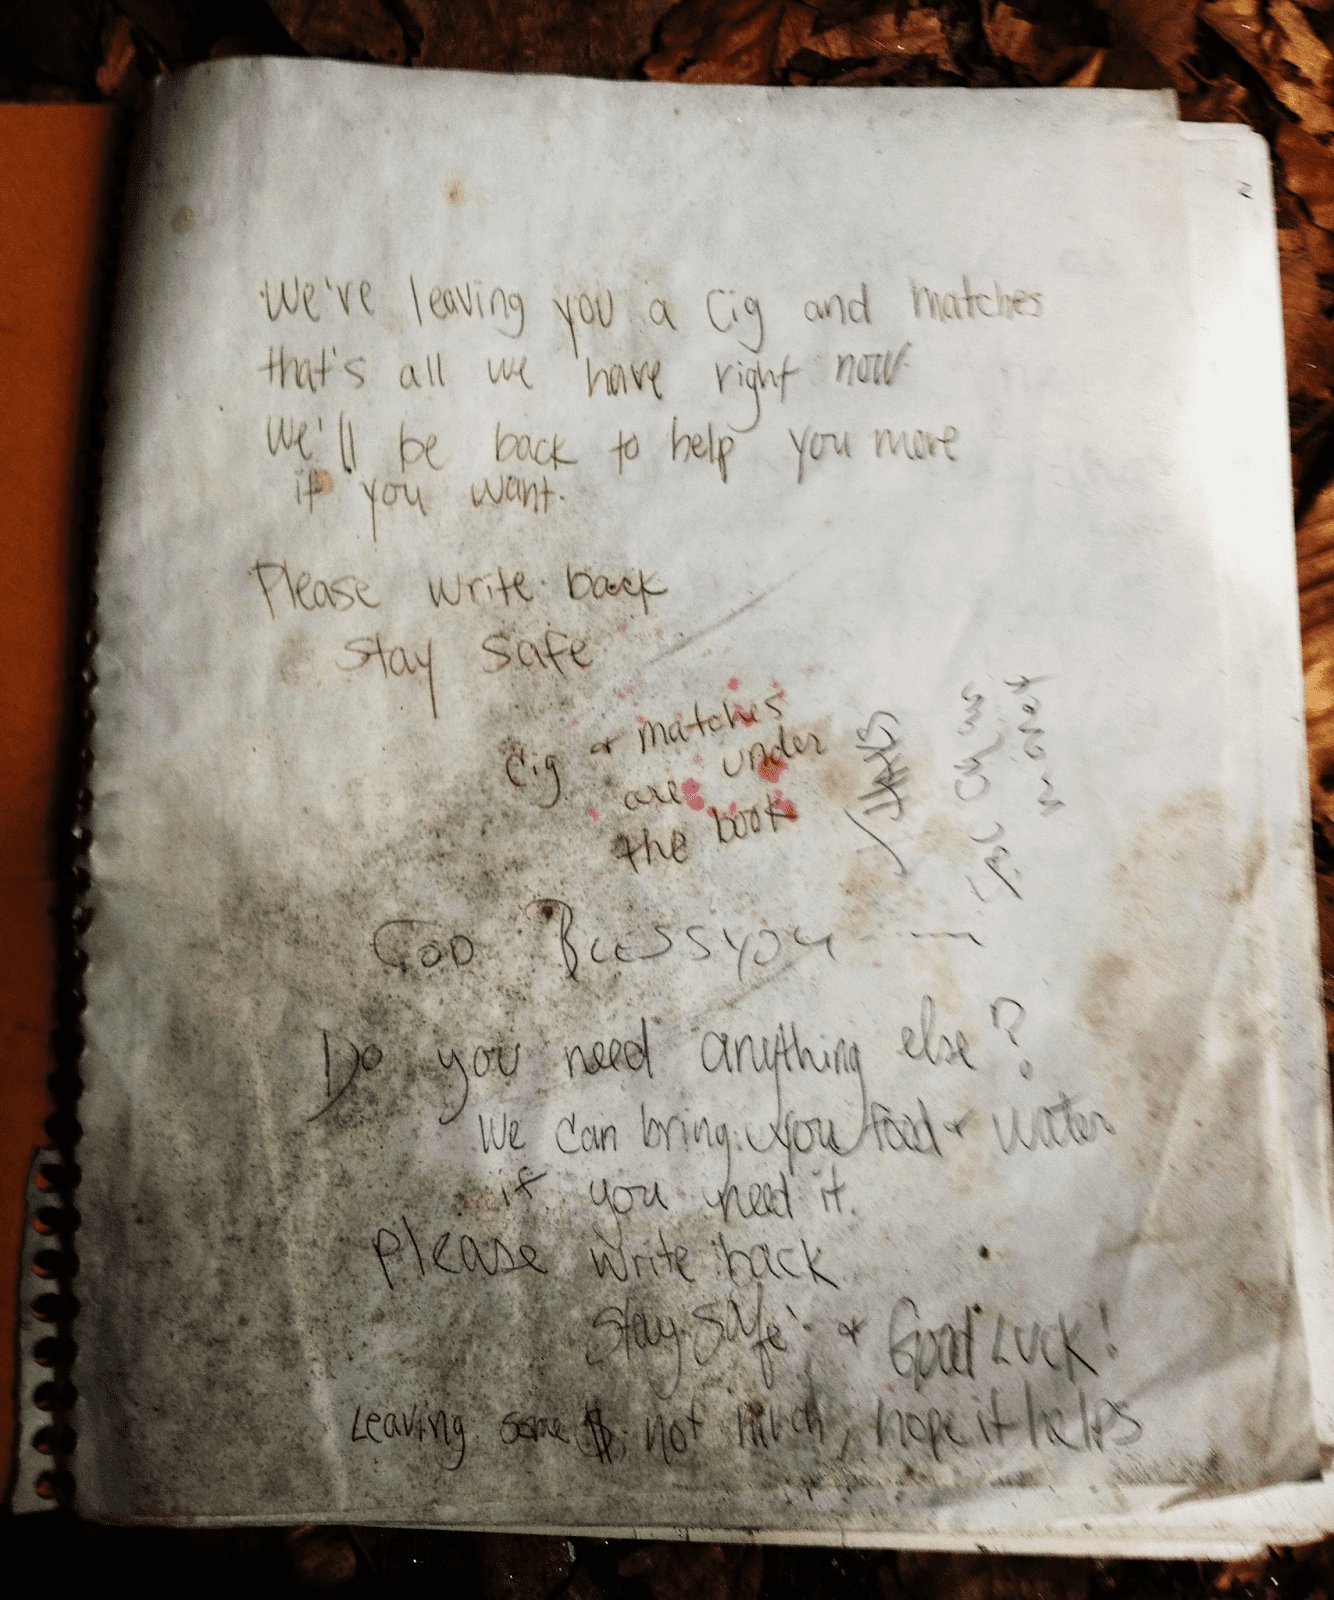 We've leaving you a Cig and matches
that's all we have right now
We'll be back to help you more
if you want.
Please write back
stay safe
Cig & matches
are under
the book
God Bless you
Do you need anything else?
We can bring you food & water
if you need it.
Please write back
Stay safe & Good Luck!
Leaving some $, not much, hope it helps